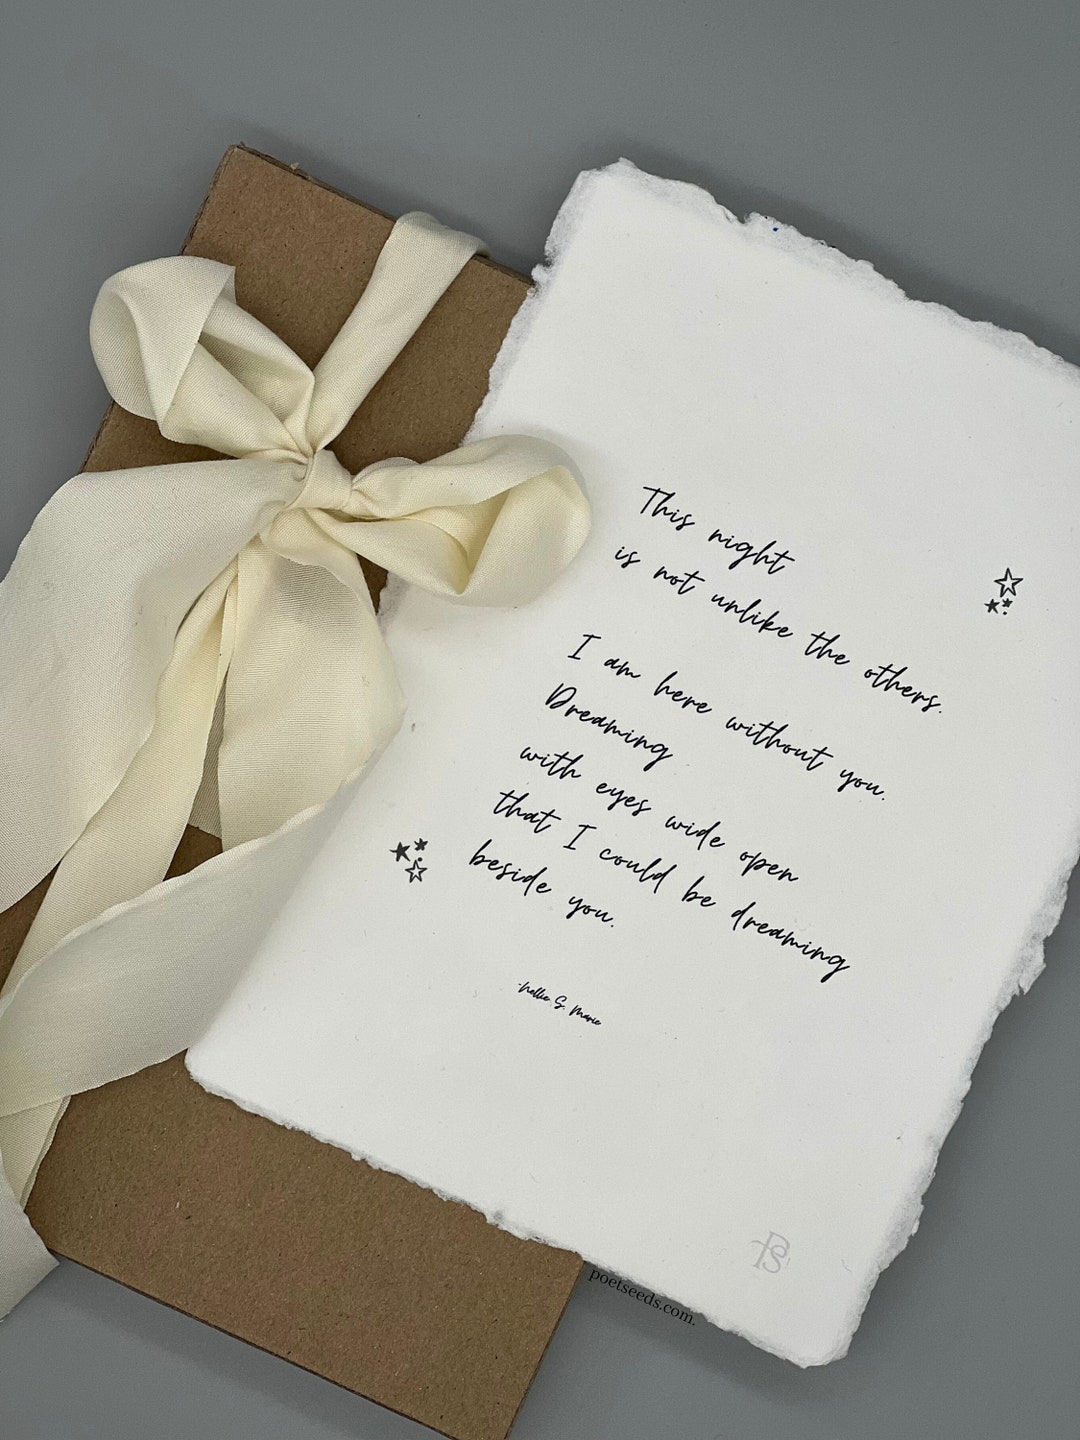 This night
is not unlike the others.
I am here without you.
Dreaming
with eyes wide open
that I could be dreaming
beside you.
-Nellie S. Marie
PS
poetseeds.com.